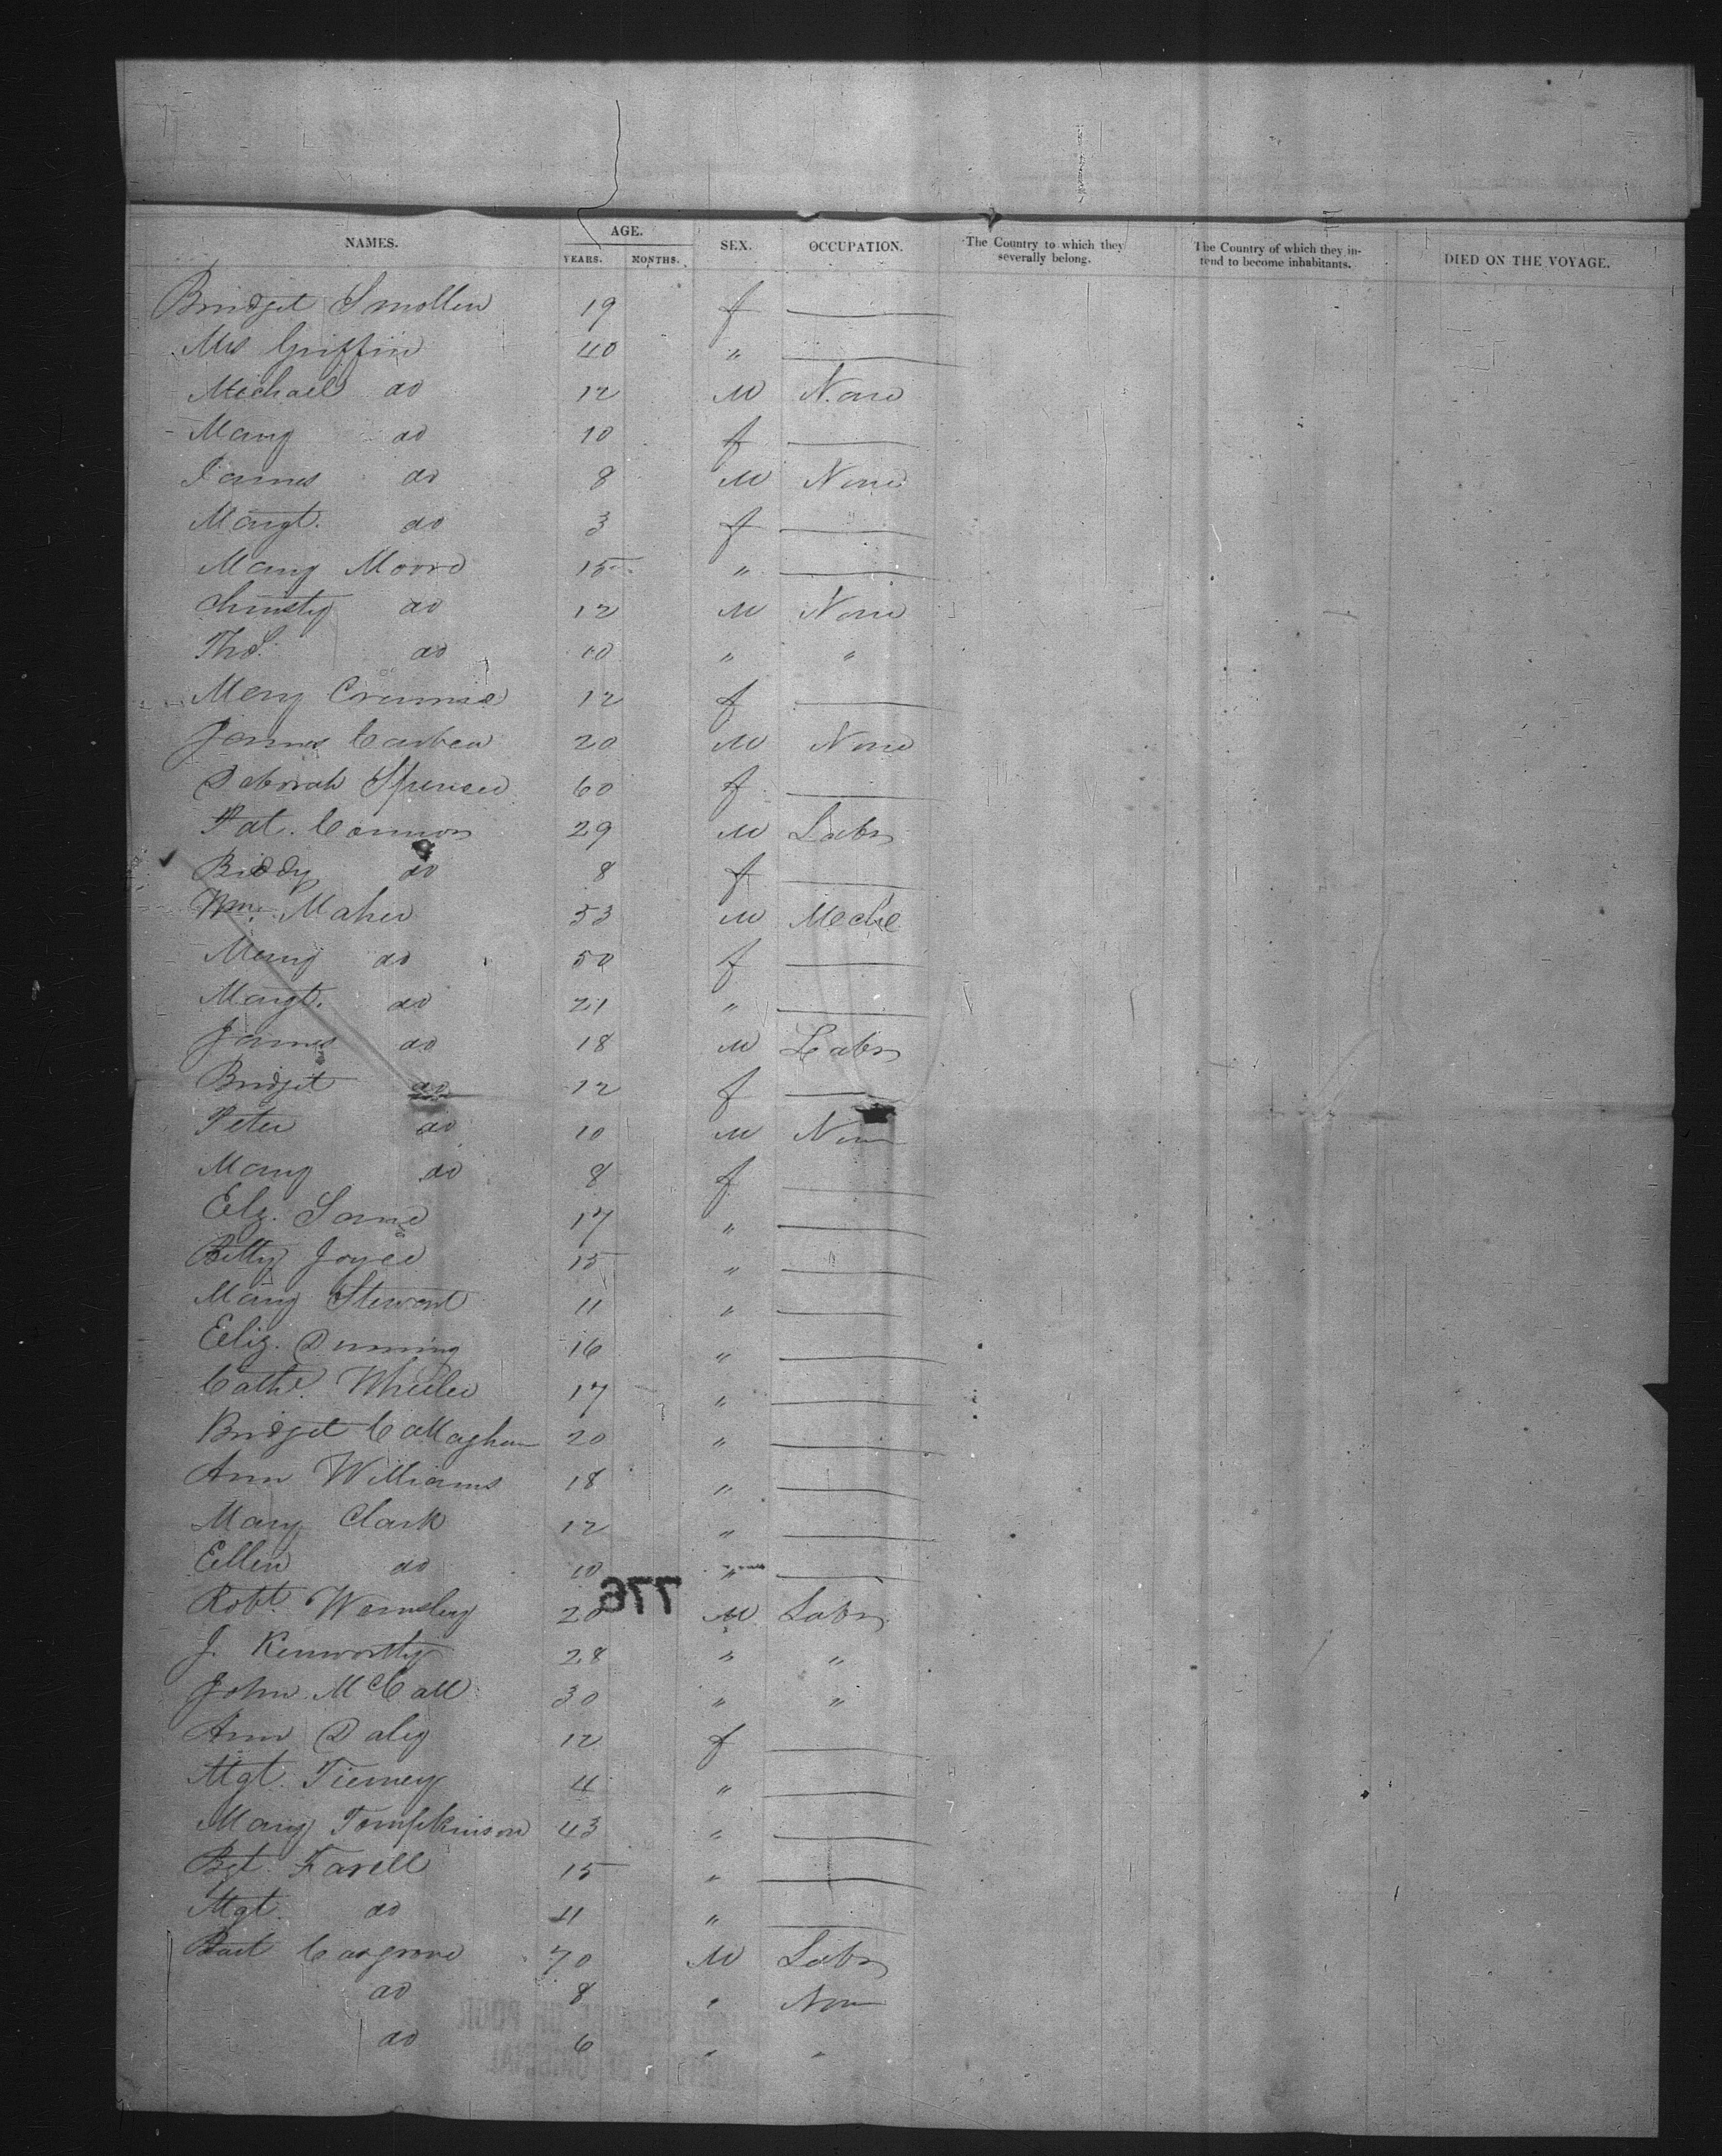 NAMES. AGE. YEARS. MONTHS. SEX. OCCUPATION. The Country to which they severally belong. The Country of which they intend to become inhabitants. DIED ON THE VOYAGE.
Bridget Smollen 19 f ——
Mrs Griffin 40 " ——
Michael do 12 M None
Mary do 10 f ——
James do 8 M None
Margt. do 3 f ——
Mary Moore 15 " ——
Christy do 12 M None
Thos. do 10 " "
Mery 12 f ——
James 20 M None
Deborah Spencer 60 f ——
Pat. Connor 29 M Labr
Biddy do 8 f ——
Wm. Maher 53 M Mech
Mary do 50 f ——
Margt. do 21 " ——
James do 18 M Labr
Bridget do 12 f ——
Peter do 10 M Non
Mary do 8 f ——
Elz. 17 " ——
Betty Joyce 15 " ——
Mary Stewart 11 " ——
Eliz. Dunning 16 " ——
Cathe. Wheeler 17 " ——
Bridget Callaghan 20 " ——
Ann Williams 18 " ——
Mary Clark 12 " ——
Ellen do 10 " ——
776
Robt. Wamsley 20 M Labr
J. Kenworthy 28 " "
John McCall 30 " "
Ann Daly 12 f ——
Mgt. Tierney 11 " ——
Mary Tompkinson 43 " ——
Bgt. Farell 15 " ——
Mgt. do 11 " ——
Bart Casgrove 70 M Labr
do 8 " Non
do 6 " "